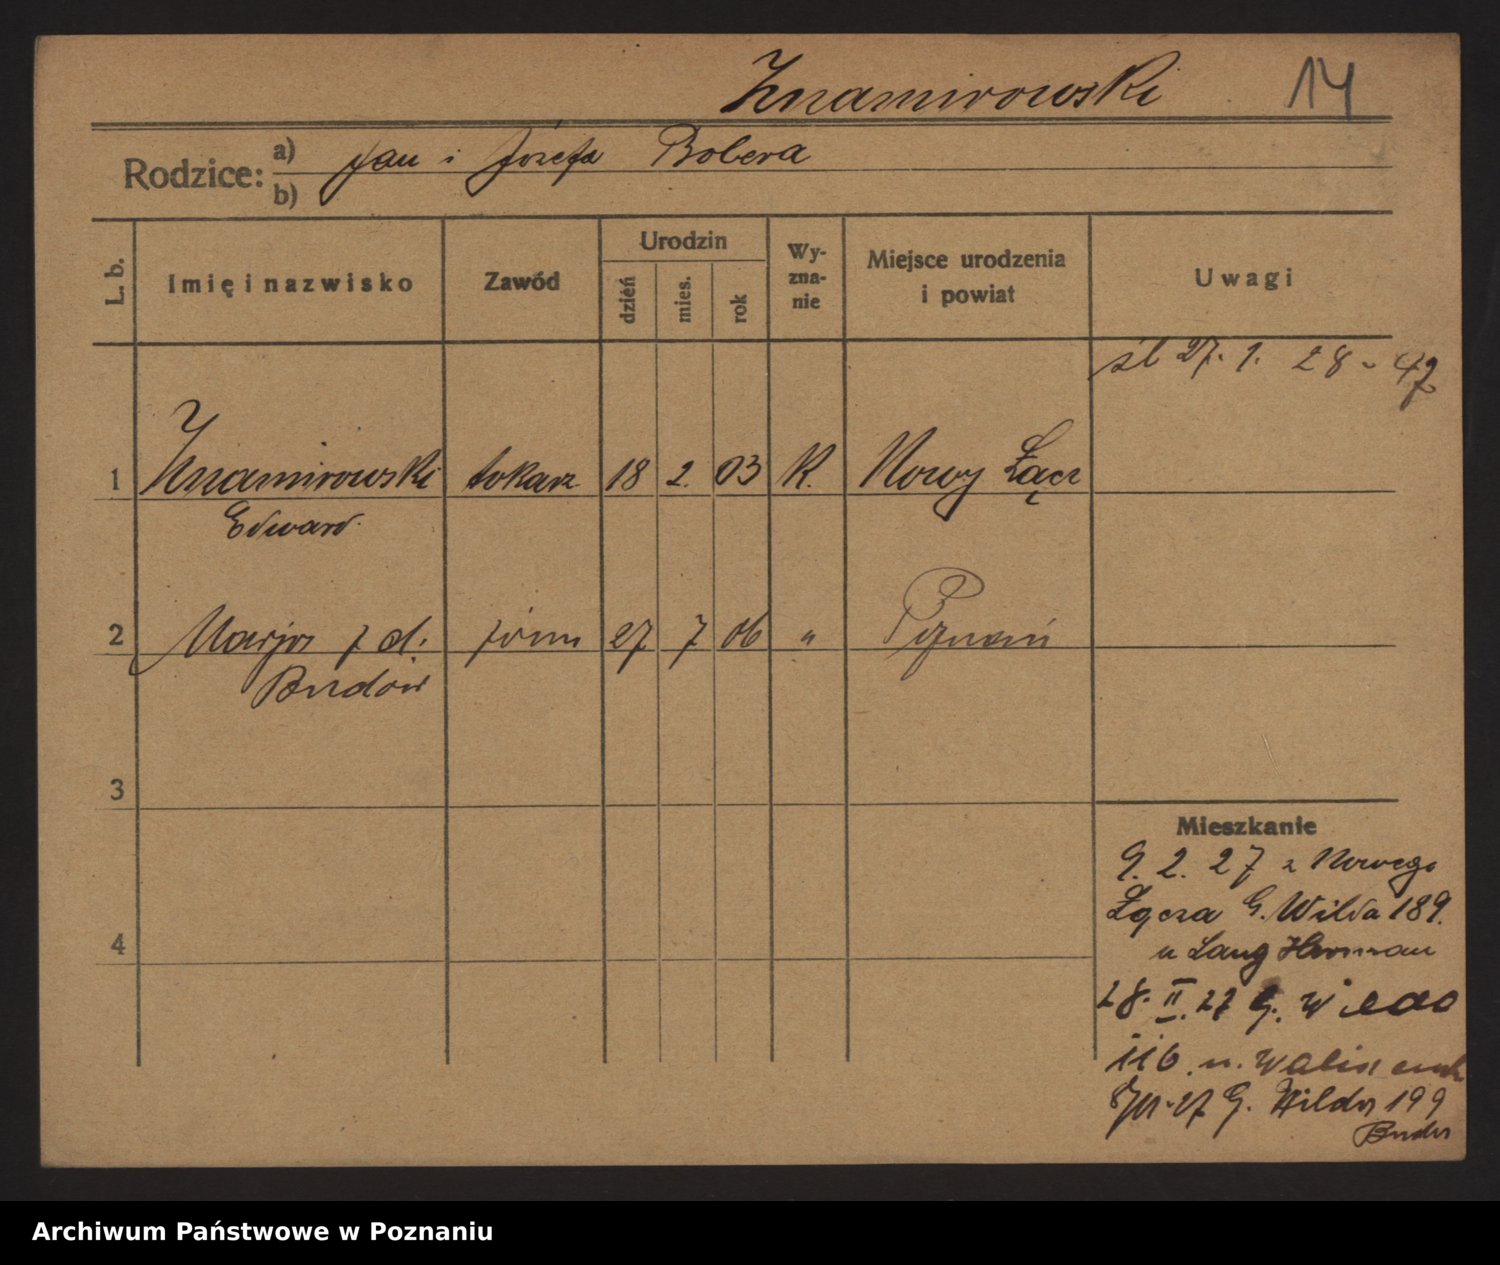 Znamirowski 14
Rodzice: a) Jan i Józefa Bobera
b)
L. b. Imię i nazwisko Zawód Urodzin dzień mies. rok Wyznanie Miejsce urodzenia i powiat Uwagi
śl 27. 1. 28 - 47
1 Znamirowski tokarz 18 2. 03 K. Nowy Łącz
Edward
2 Marja z d. 27 7 06 " Poznań
3
4
Mieszkanie
9. 2. 27 z Nowego
Łącza G. Wilda 189.
u Lang Herman
28. II. 27 G. Wilda
116 u.
27 G. Wilda 199
Archiwum Państwowe w Poznaniu